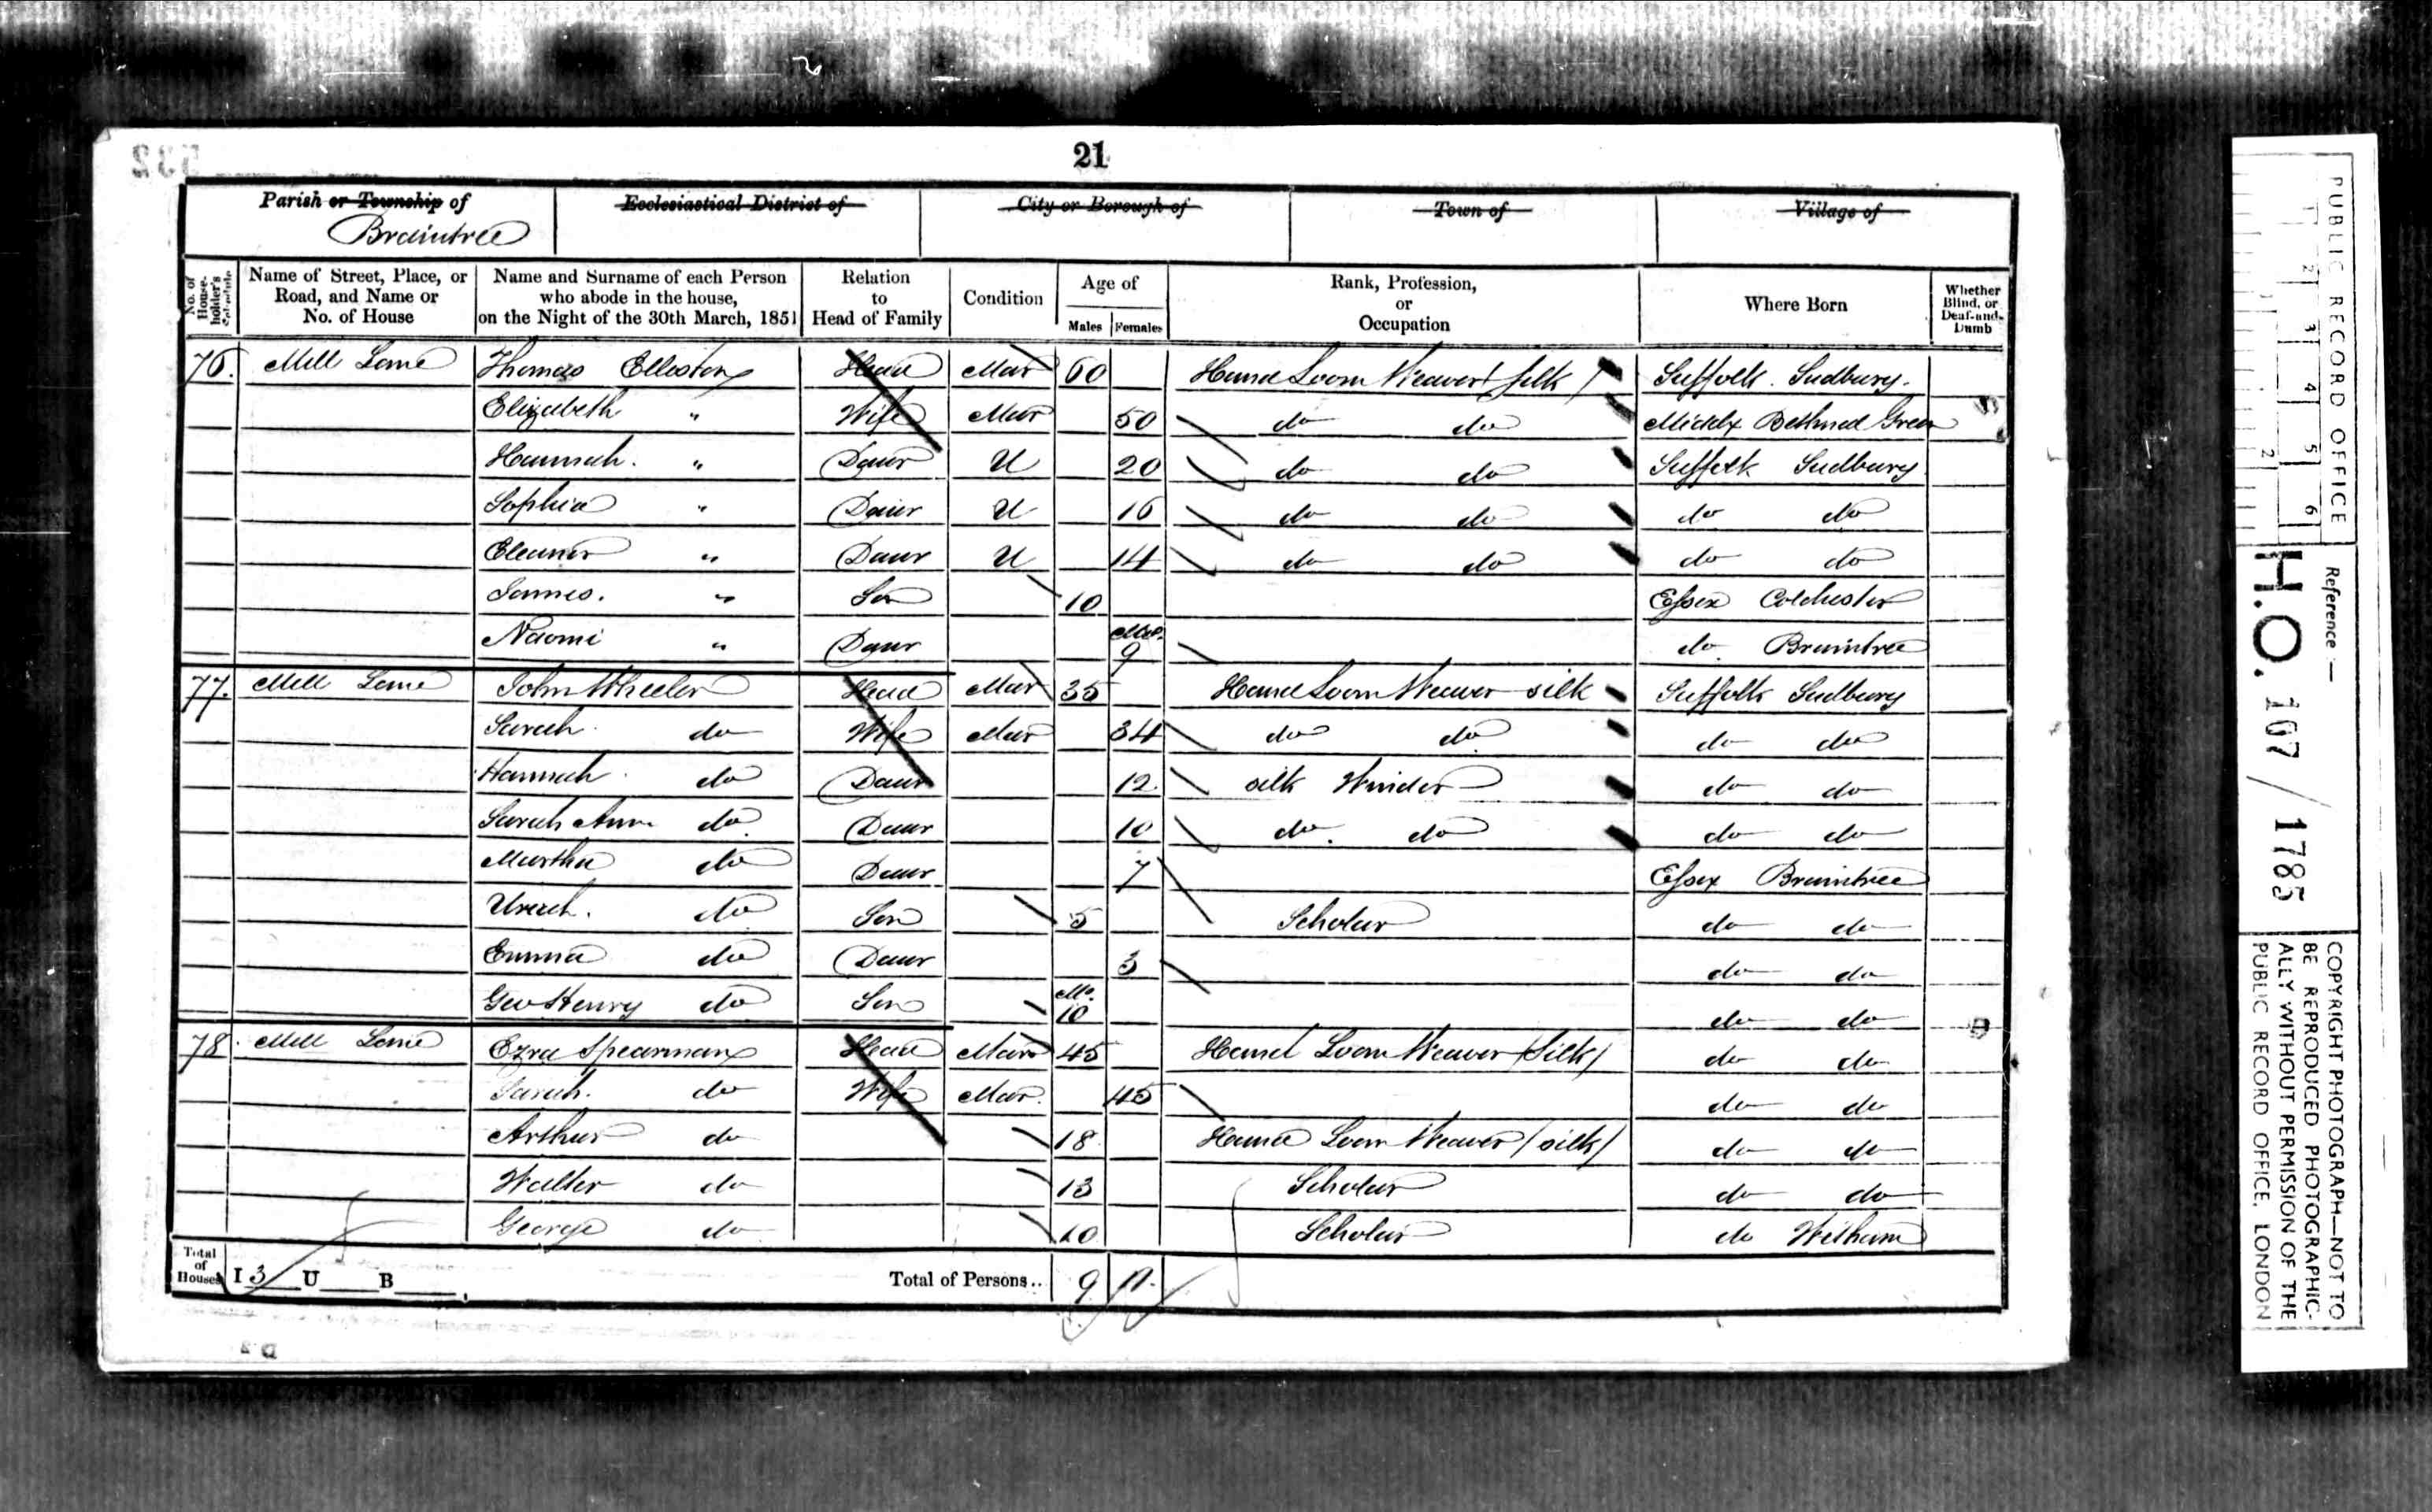 21
Parish or Township of Ecclesiastical District of City or Borough of Town of Village of
Braintree
No. of House-holder's Schedule
Name of Street, Place, or Road, and Name or No. of House
Name and Surname of each Person who abode in the house, on the Night of the 30th March, 1851
Relation to Head of Family
Condition
Age of
Males Females
Rank, Profession, or Occupation
Where Born
Whether Blind, or Deaf-and-Dumb
76. Mill Lane Thomas Elleston Head Mar 60 Hand Loom Weaver (silk) Suffolk. Sudbury.
Elizabeth " Wife Mar 50 do do Middx Bethnal Green
Hannah. " Daur U 20 do do Suffolk Sudbury
Sophia " Daur U 16 do do do do
Eleanor " Daur U 14 do do do do
James. " Son 10 Essex Colchester
Naomi " Daur Mo. 9 do Braintree
77. Mill Lane John Wheeler Head Mar 35 Hand Loom Weaver silk Suffolk Sudbury
Sarah do Wife Mar 34 do do do do
Hannah do Daur 12 silk Winder do do
Sarah Ann do Daur 10 do. do do do
Martha do Daur 7 Essex Braintree
Uriah. do Son 5 Scholar do do
Emma do Daur 3 do do
Geo Henry do Son Mo. 10 do do
78. Mill Lane Ezra Spearman Head Mar 45 Hand Loom Weaver (silk) do do
Sarah. do Wife Mar. 45 do do
Arthur do 18 Hand Loom Weaver (silk) do do
Walter do 13 Scholar do do
George do 10 Scholar do Witham
Total of Houses I 3 U B Total of Persons.. 9 11.
PUBLIC RECORD OFFICE
1 2 3 4 5 6
2
Reference :—
H.O. 107/1785
COPYRIGHT PHOTOGRAPH—NOT TO
BE REPRODUCED PHOTOGRAPHIC-
ALLY WITHOUT PERMISSION OF THE
PUBLIC RECORD OFFICE, LONDON